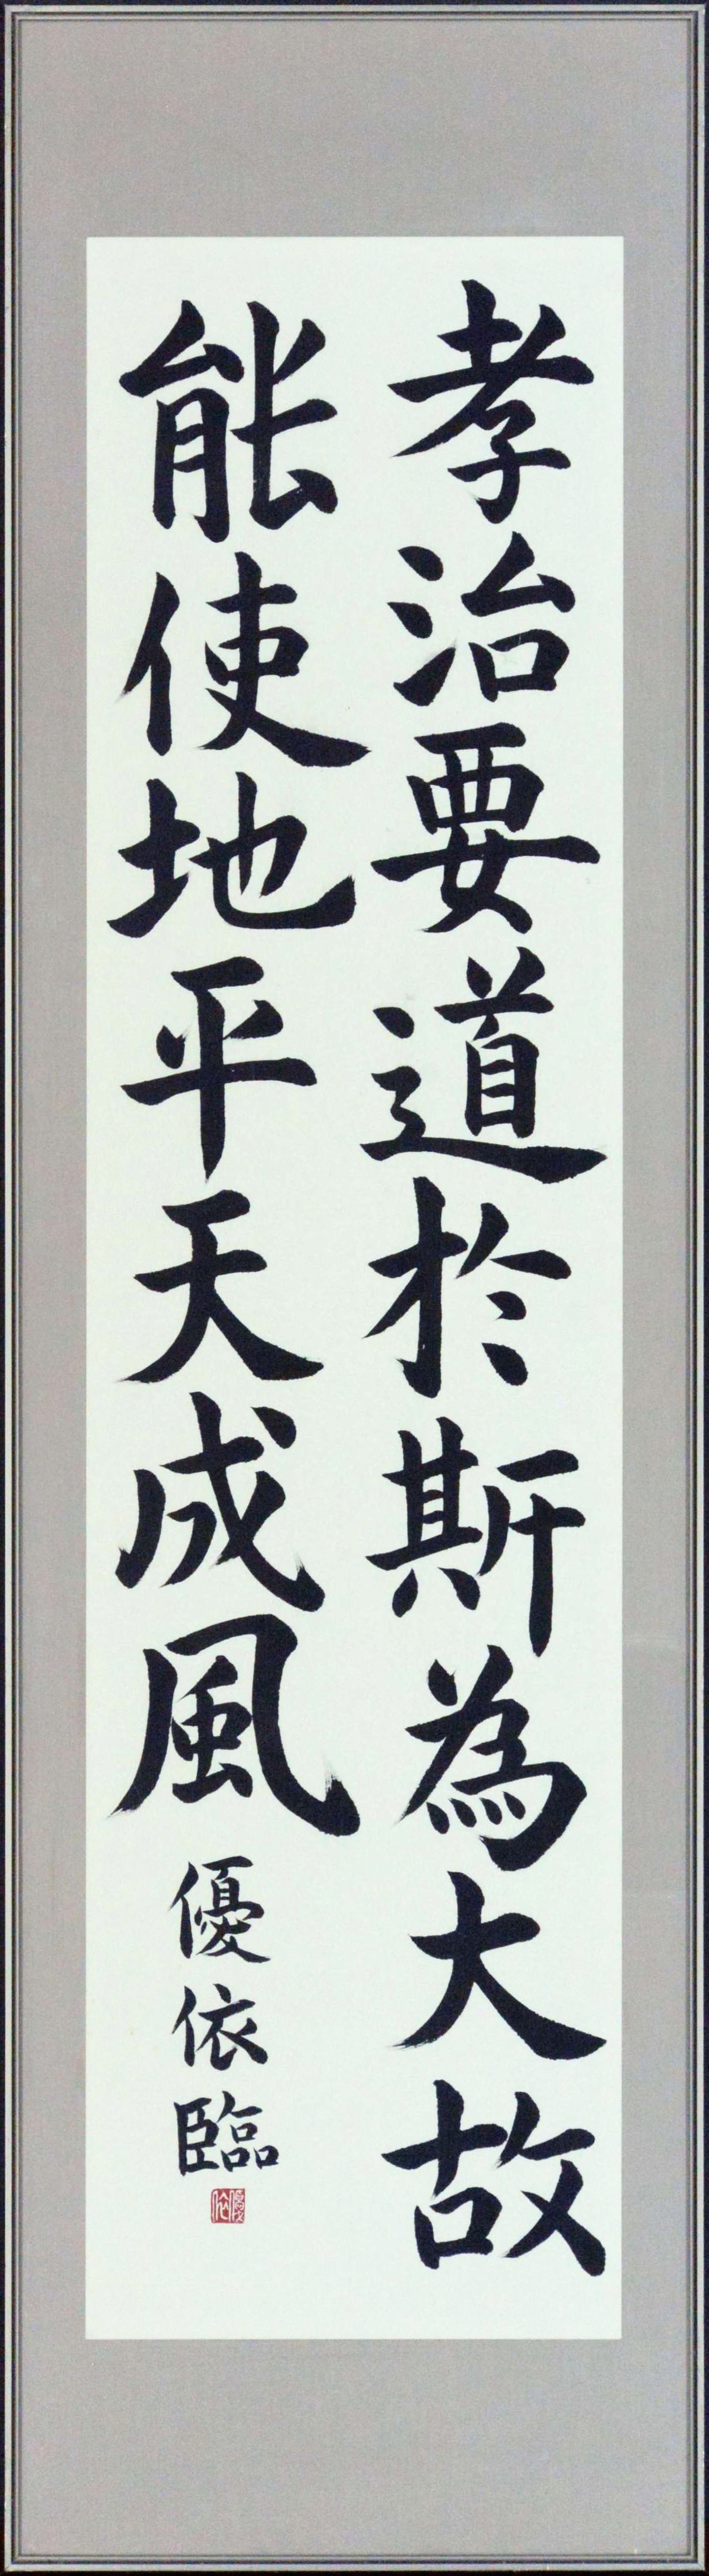 孝治要道於斯為大故
能使地平天成風
優依臨
優依